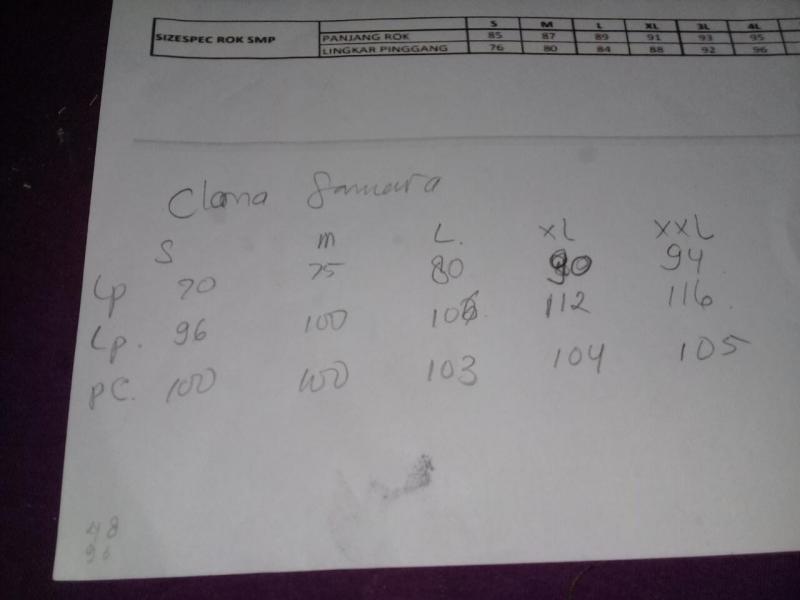 S M L XL 3L 4L
SIZESPEC ROK SMP PANJANG ROK 85 87 89 91 93 95
LINGKAR PINGGANG 76 80 84 88 92 96
S m L. XL XXL
Lp 70 75 80 90 94
Lp. 96 100 106 112 116
PC. 100 100 103 104 105
48
96